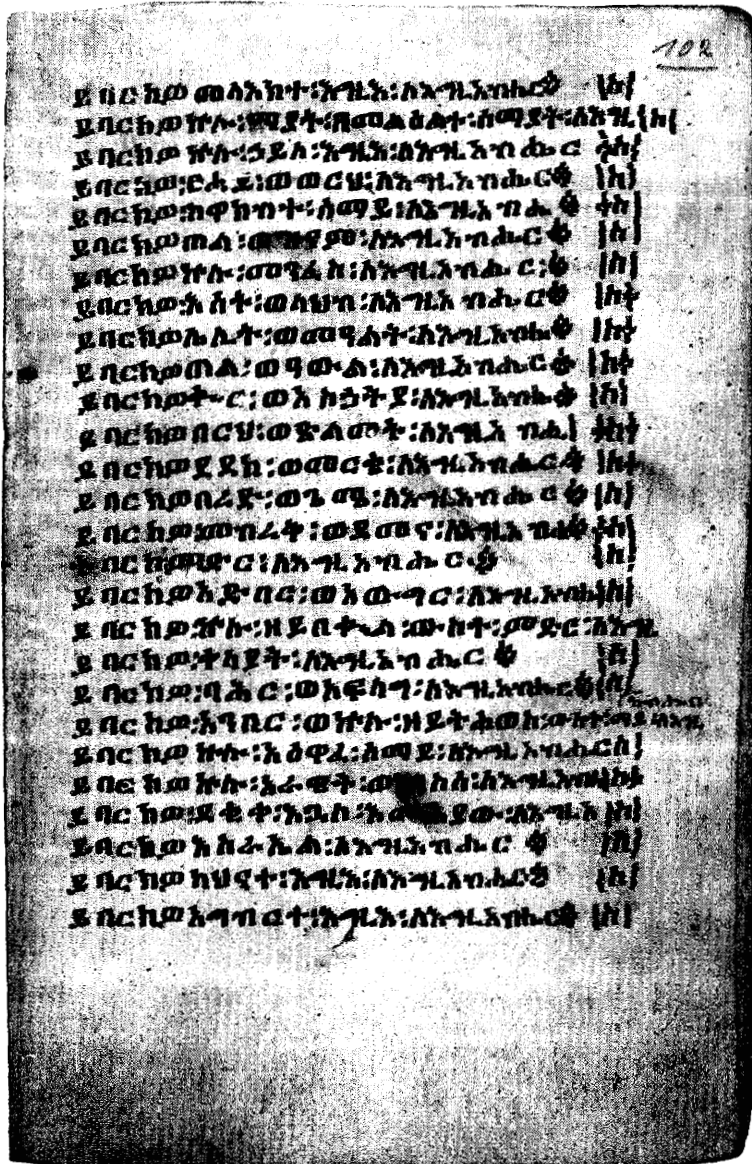 102
ይባርክዎ መላእክተ፡እግዚአ፡ለእግዚአብሔር። ስ
ይባርክዎ ኵሉ፡ማያት፡ዘመልዕልተ፡ሰማያት፡ለእግዚ ስ
ይባርክዎ ኵሉ፡ኃይለ፡እግዚአ፡ለእግዚአብሔር ስ
ይባርክዎ፡ፀሐይ፡ወወርህ፡ለእግዚአብሔር። ስ
ይባርክዎ፡ከዋክብተ፡ሰማይ፡ለእግዚአብሔ። ስ
ይባርክዎ ጠል፡ለእግዚአብሔር። ስ
ይባርክዎ ኵሉ፡መንፈስ፡ለእግዚአብሔር፡። ስ
ይባርክዎ፡እሳተ፡ወላህብ፡ለእግዚአብሔር። ስ
ይባርክዎ ሌሊት፡ወመዓልት፡ለእግዚአብሔ። ስ
ይባርክዎ ጠል፡ለእግዚአብሔር። ስ
ይባርክዎ ቍር፡ለእግዚአብሔ። ስ
ይባርክዎ በርህ፡ወጽልመት፡ለእግዚአ ብሔ ስ
ይባርክዎ ለእግዚአብሔር። ስ
ይባርክዎ በረድ፡ወጊሜ፡ለእግዚአብሔር። ስ
ይባርክዎ፡መብረቅ፡ወደመና፡ለእግዚአብሔ። ስ
ይባርክ፡ምድር፡ለእግዚአብሔር። ስ
ይባርክዎ አድባር፡ወአውግር፡ለእግዚአብሔ ስ
ይባርክዎ፡ኵሉ፡ዘይበቍል፡ውስተ፡ምድር፡ለእግዚ
ይባርክዎ፡ለእግዚአብሔር። ስ
ይባርክዎ፡ባሕር፡ወአፍላግ፡ለእግዚአብሔር። ስ
ይባርክዎ፡አንበር፡ወኵሉ፡ዘይትሐወስ፡ውስተ፡ማይ ለእግዚ
ይባርክዎ ኵሉ፡አዕዋፈ፡ሰማይ፡ለእግዚአብሔር ስ
ይባርክዎ ኵሉ፡አራዊት፡ለእግዚአብሔ ስ
ይባርክዎ፡ደቂቀ፡እጓለ፡ለእግዚአ ስ
ይባርክዎ እስራኤል፡ለእግዚአብሔር። ስ
ይባርክዎ ካህናተ፡እግዚአ፡ለእግዚአብሔር። ስ
ይባርክዎ አግብርተ፡እግዚአ፡ለእግዚአብሔር። ስ